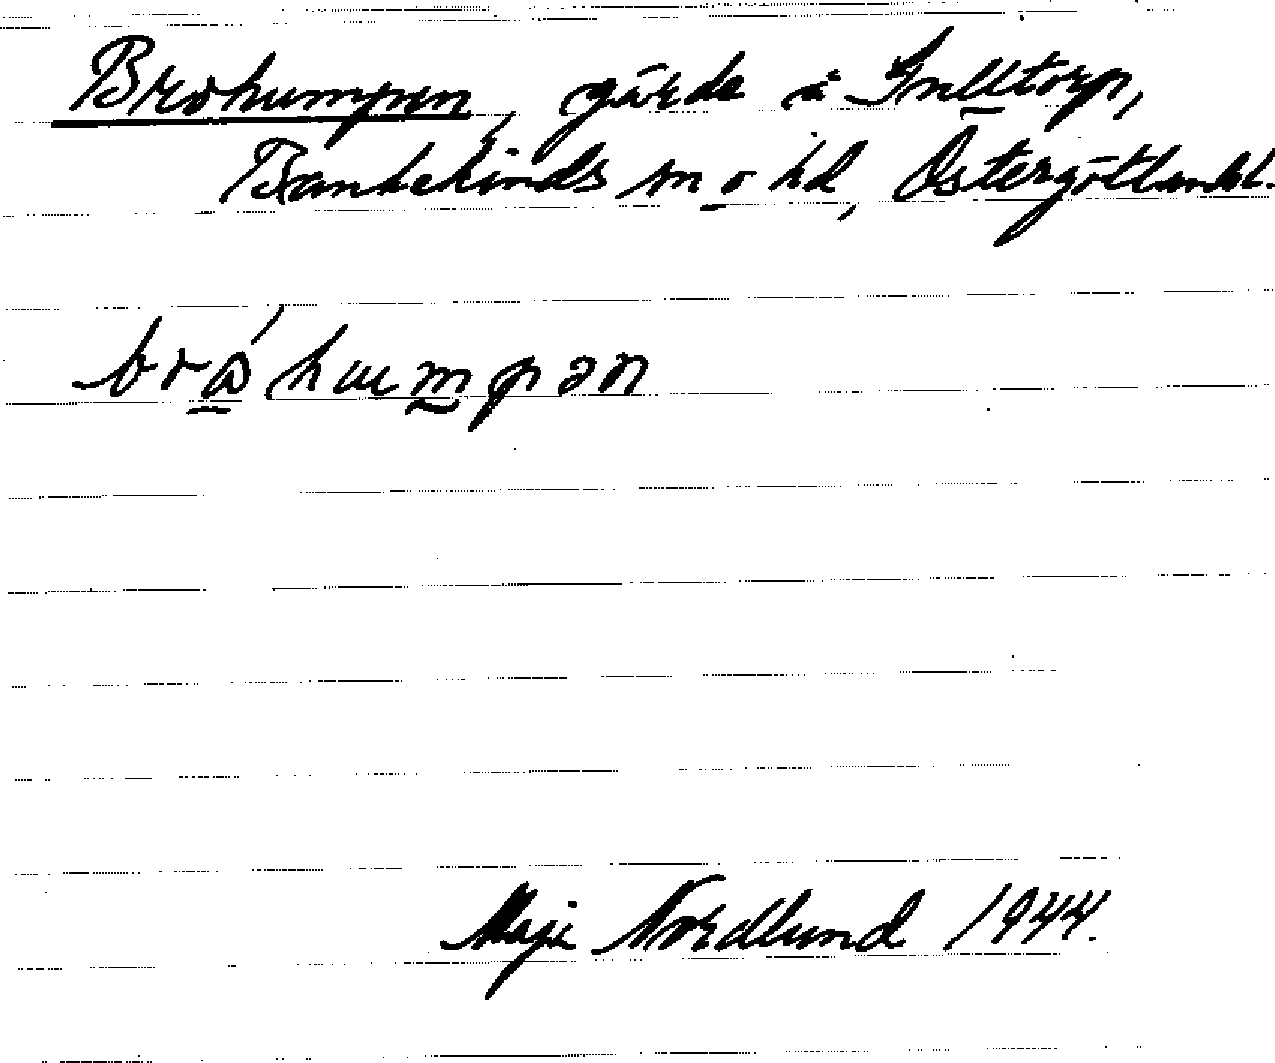 Brohumpen, gärde å Snilltorp,
Bankekinds sn o hd, Östergötland.
Maja Nordlund 1944.